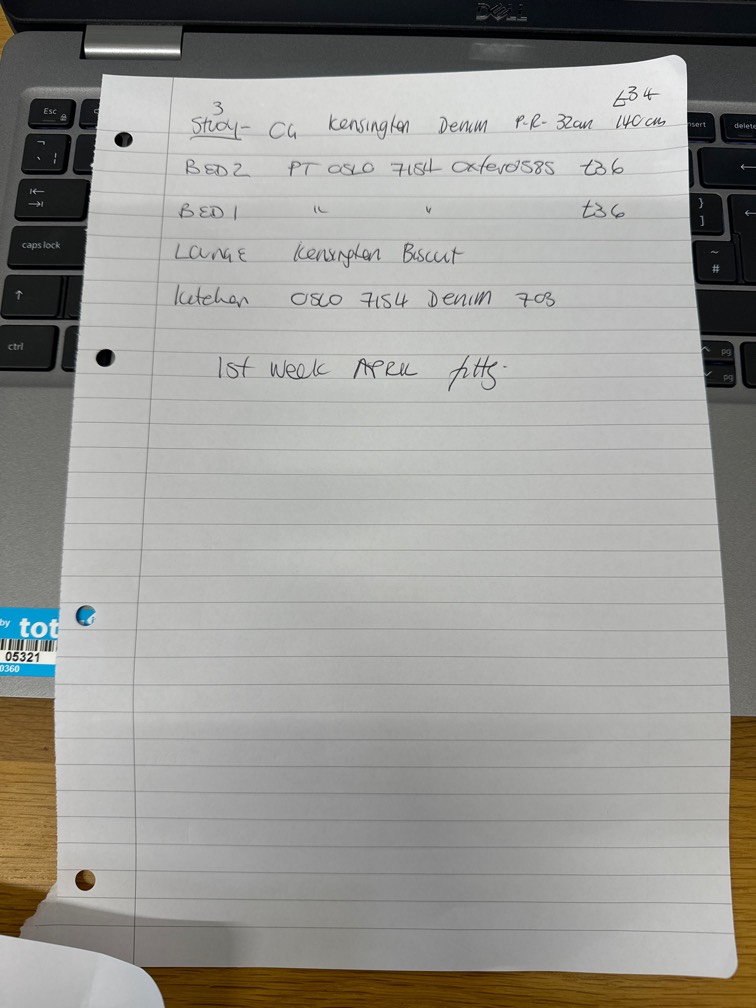 DELL
Esc
insert
delete
caps lock
ctrl
pg
pg
3
£34
Study - CG Kensington Denim P-R- 32cm 140cm
BED 2 PT OSLO 7154 Oxford 585 £36
BED 1 " " £36
Lounge Kensington Biscuit
Kitchen OSLO 7154 Denim 703
1st Week APRIL
by tot
05321
0360